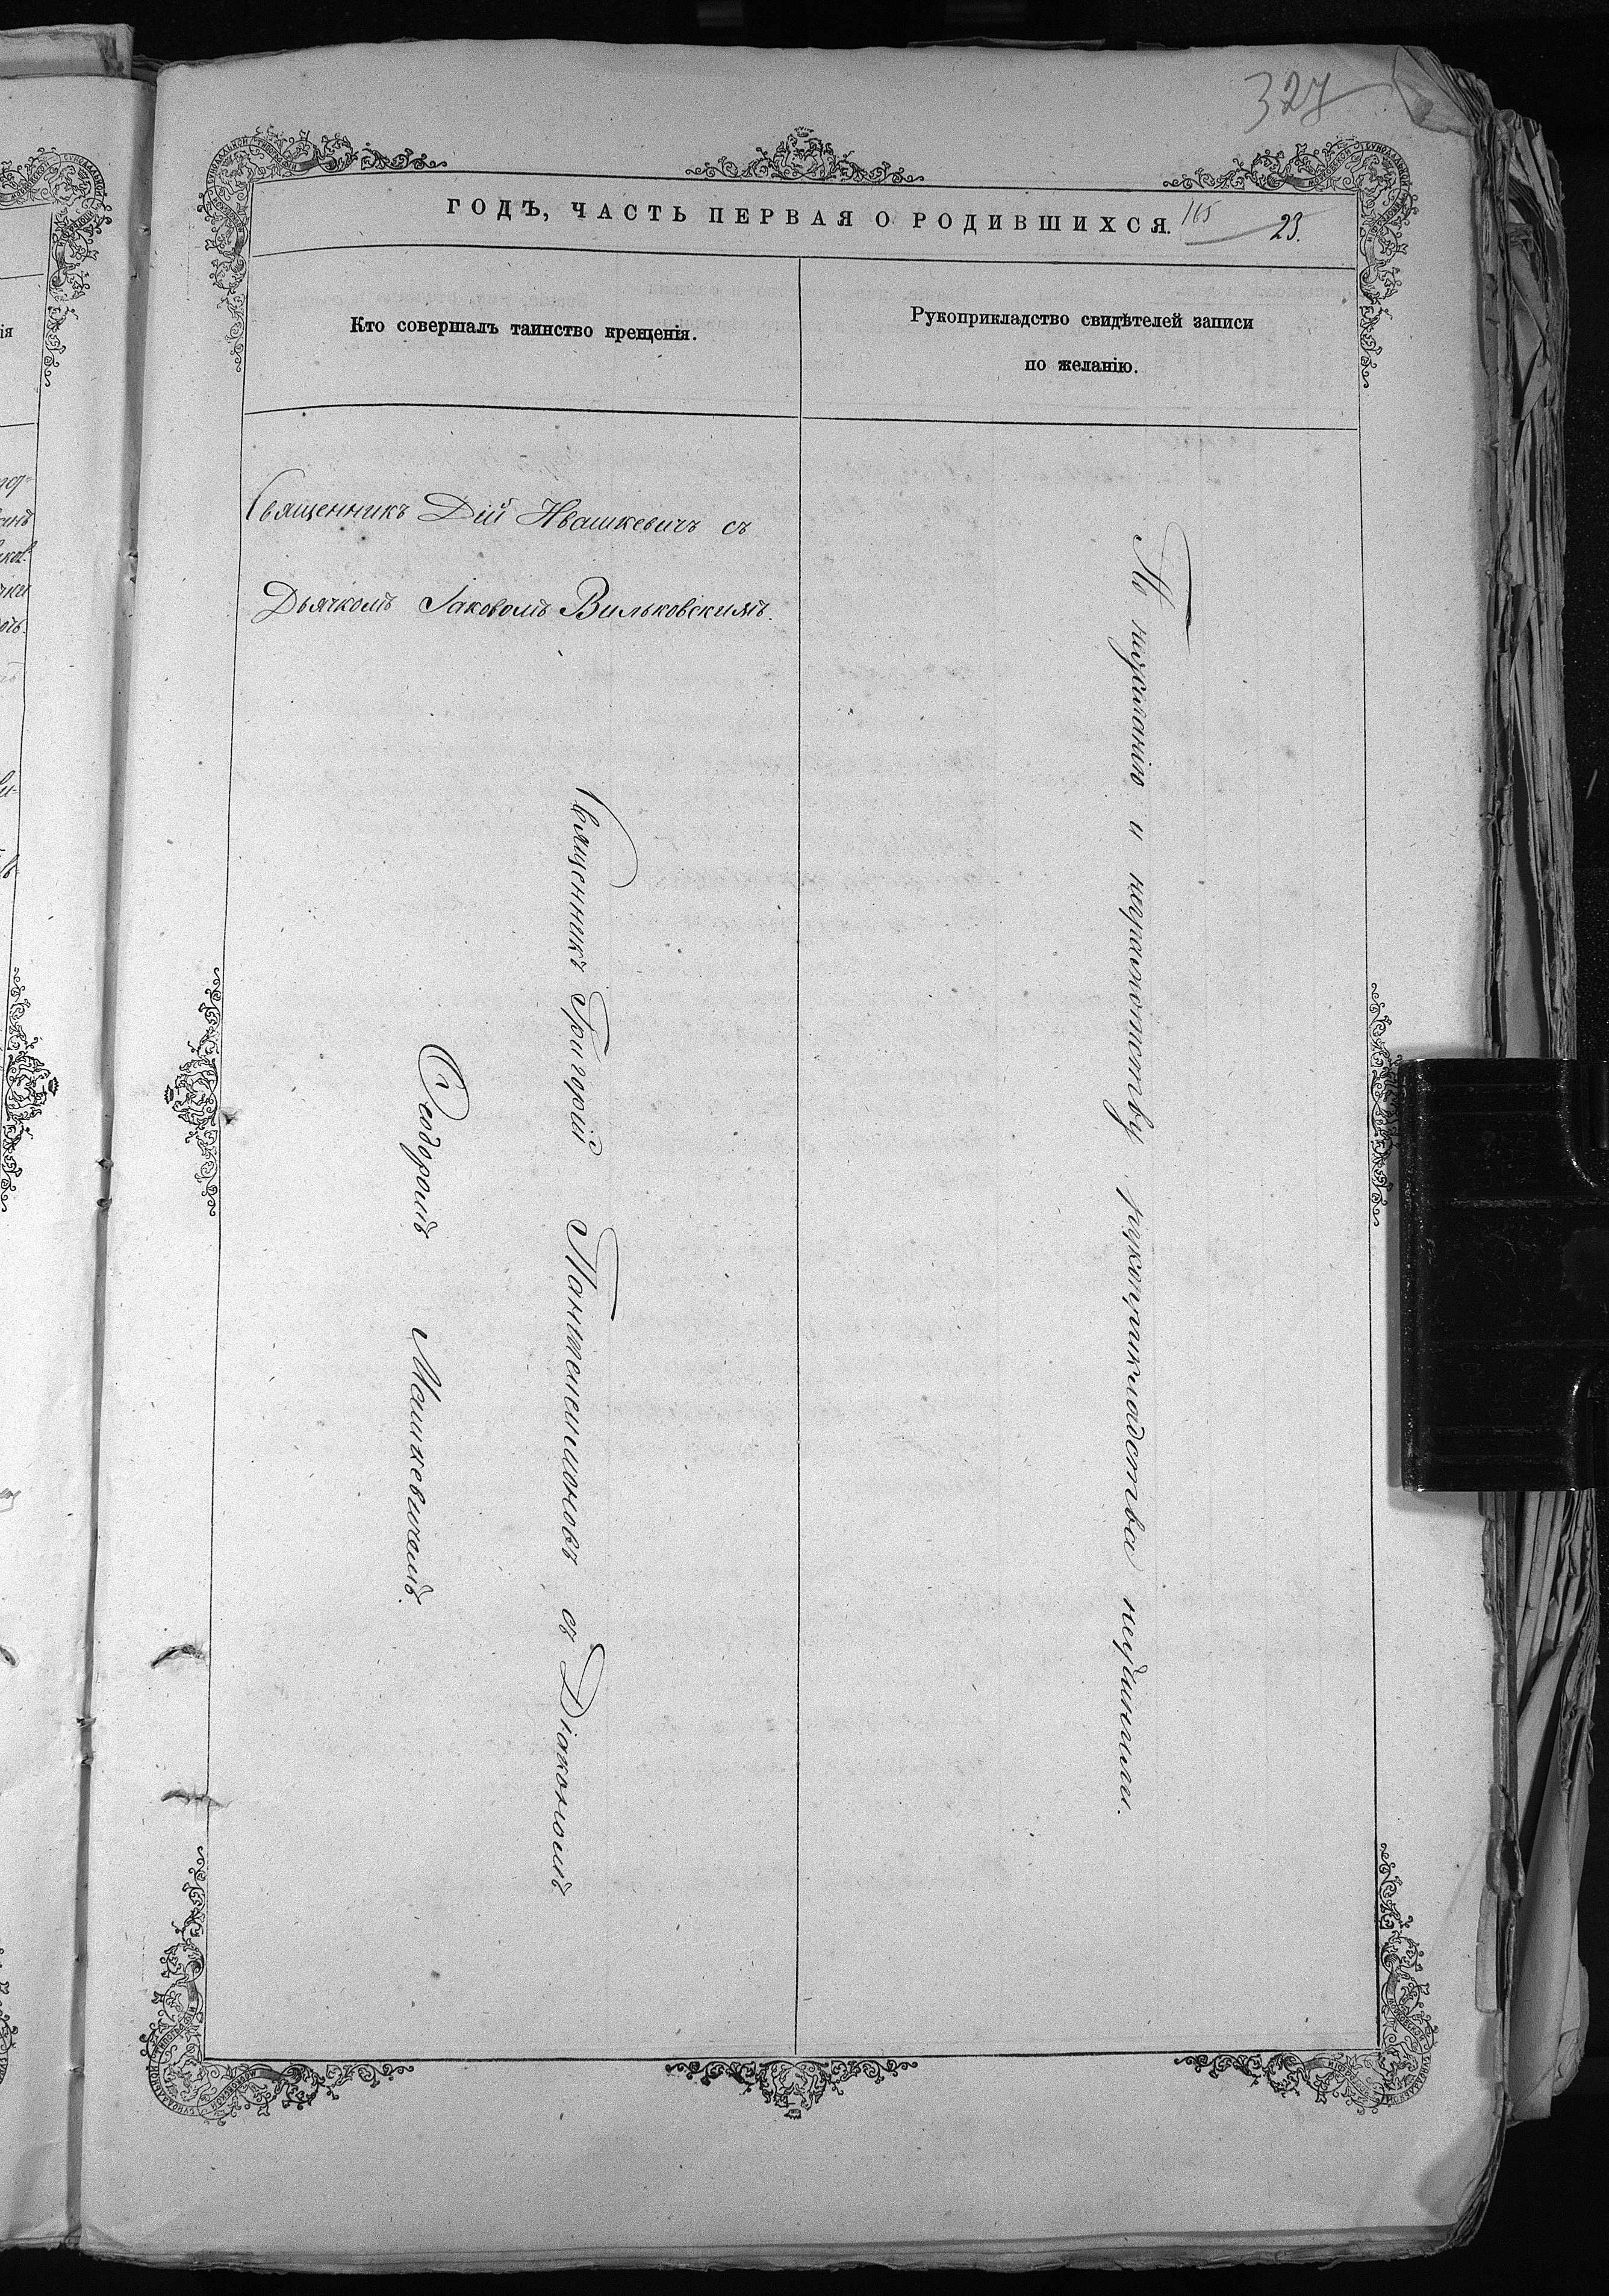 327
ГОДЪ, ЧАСТЬ ПЕРВАЯ О РОДИВШИХСЯ.
165
23.
Кто совершалъ таинство крещенія.
Рукоприкладство свидѣтелей записи
по желанію.
Священникъ Дій Ивашкевичъ съ
Дьячкомъ Іаковомъ Вильковскимъ.
Священникъ Григорій Пантелеимоновъ съ Діакономъ
Ѳеодоромъ Мацкевичемъ.
По нежеланію и неграмотству рукоприкладства неучинили.